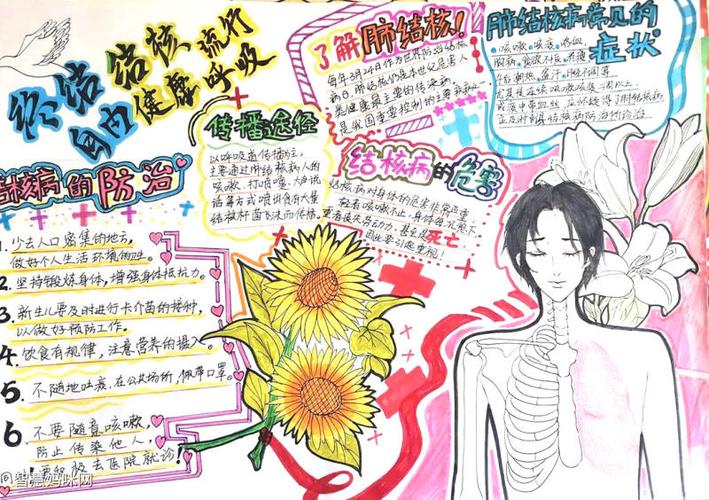 终结结核流行
自由健康呼吸
了解肺结核!
每年3月24日作为世界防治结核
病日肺结核们是本世纪危害人
类健康最主要的传染病,
是我国重要控制的主要疾病之
肺结核病常见的
症状
咳嗽、咳痰、咯血,
胸痛、食欲不振、
午后潮热、盗汗
传播途径
以呼吸道传播为主,
主要通过肺结核病人的
咳嗽、打喷嚏、大声说
话等方式喷出含有大量
结核杆菌
结核病的危害
结核病对身体的危害非常严重
轻者咳嗽不止,身体
丧失劳动力,甚至是死亡
因此要引起重视!
结核病的防治
1. 少去人口密集的地方,
做好个人生活环境的卫生。
2. 坚持锻炼身体,增强身体抵抗力。
3. 新生儿要及时进行卡介苗的接种,
以做好预防工作。
4. 饮食有规律,注意营养的摄入。
5. 不随地吐痰,在公共场所,佩带口罩。
6 不要随意咳嗽,
防止传染他人,
去医院就诊!
@智慧妈咪网